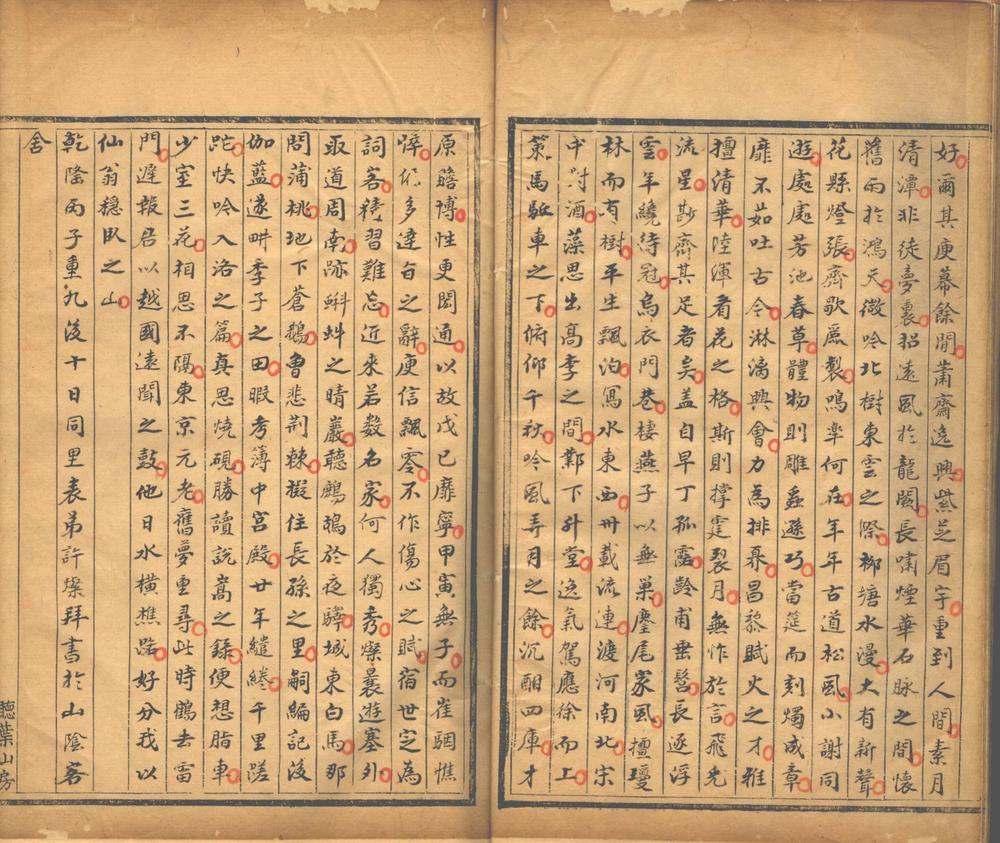 好爾其庚幕餘閒蕭齋逸興紫芝眉宇重到人間素月
清潭非徒夢裏招遠風於龍閣長嘯煙華石脉之間懷
舊雨於鴻天微吟北樹東雲之際柳塘水漫大有新聲
花縣燈張齊歌爲製鳴牽何在年年古道松風小謝同
遊處處芳池春草體物則雕蟲遜巧當筵而刻燭成章
靡不茹吐古今淋漓興會力為排奡昌黎賦火之才雅
擅清華陸渾看花之格斯則撑霆裂月無怍於言飛兔
流星斟齊其足者矣蓋自早丁孤露齡甫垂髫長逐浮
雲年纔待冠烏衣門巷棲燕子以無巢麈尾家風擅瓊
林而有樹平生飄泊寫水東西卅載流連渡河南北宋
中對酒藻思出高李之間鄴下升堂逸氣駕應徐而上
策馬驅車之下俯仰千秋吟風弄月之餘沉酣四庫才
原瞻博性更閎通以故戊巳靡寧甲寅無子而崔駰憔
悴仍多達旨之辭庾信飄零不作傷心之賦宿世定為
詞客積習難忘近來若數名家何人獨秀燦曩遊塞外
取道周南跡蝌蚪之晴巖聽鷓鴣於夜驛城東白馬那
問蒲桃地下蒼鵝魯悲荆棘擬住長孫之里嗣編記後
伽藍遂畊季子之田暇考薄中宮殿廿年繾綣千里蹉
跎快吟入洛之篇真思燒硯勝讀說嵩之錄便想脂車
少室三花相思不隔東京元老舊夢重尋此時鶴去雷
門遲報居以越國遠聞之鼓他日水橫樵路好分我以
仙翁穩臥之山
乾隆丙子重九後十日同里表弟許燦拜書於山陰客
舍
聽葉山房